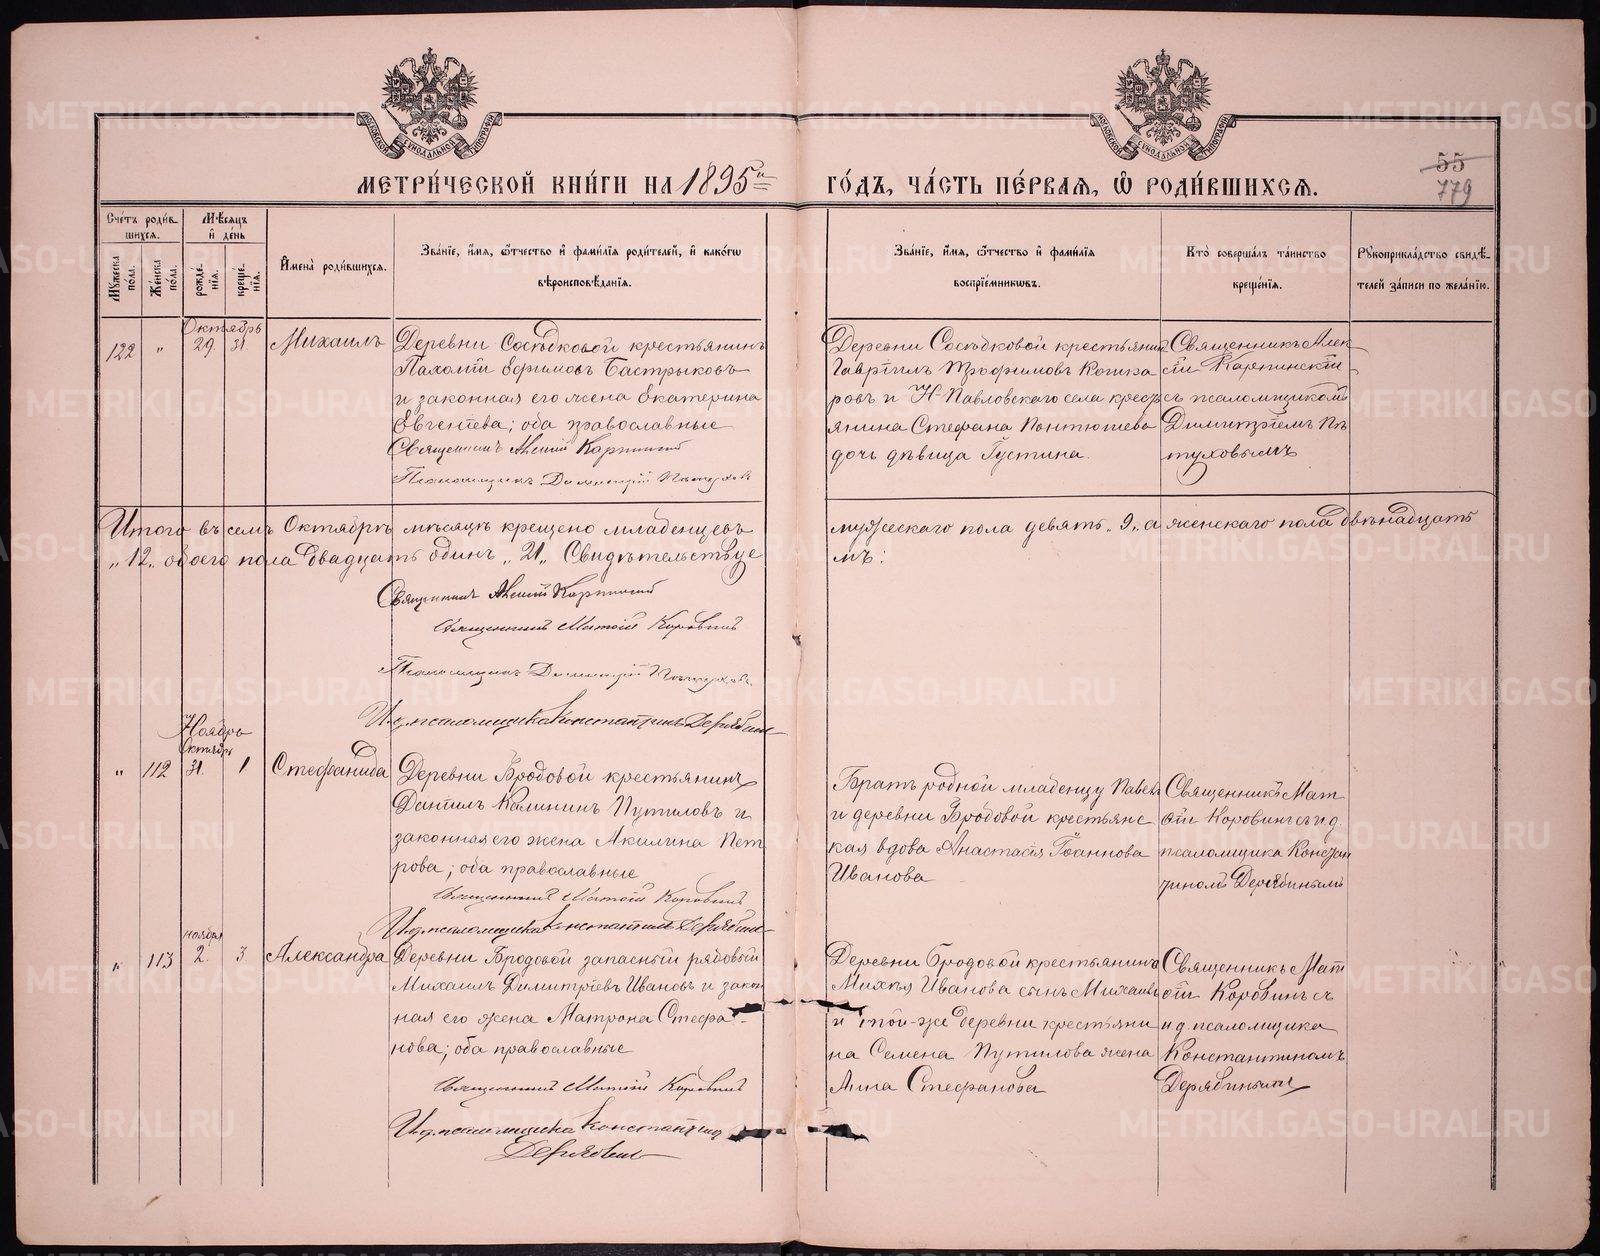 МЕТРИ́ЧЕСКОЙ КНИ́ГИ НА 1895й ГО́ДЪ, ЧА́СТЬ ПЕ́РВАЯ, Ѡ҆ РОДИ́ВШИХСЯ.
55
779
Сче́тъ роди́вшихся.
Мꙋ́жеска по́ла.
Же́нска по́ла.
Мѣ́сяцъ и҆ де́нь
рожде́нїя.
креще́нїя.
И҆мена̀ роди́вшихся.
Зва́нїе, и҆́мя, ѻ҆́тчество и҆ фами́лїя роди́телей, и҆ како́гѡ вѣроисповѣ́данїя.
Зва́нїе, и҆́мя, ѻ҆́тчество и҆ фами́лїя воспрїе́мникѡвъ.
Кто̀ соверша́лъ та́инство креще́нїя.
Рꙋкоприкла́дство свидѣ́телей за́писи по жела́нїю.
Октябрь
122 " 29. 31. Михаилъ
Деревни Сосѣдковой крестьянинъ
Пахомій Ефимовъ Бастрыковъ
и законная его жена Екатерина
Евгеніева; оба православные
Священникъ Алексій Карпинскій
Псаломщикъ Димитрій Пѣтуховъ
Деревни Сосѣдковой крестьянинъ
Гавріилъ Трофимовъ Кошка
ровъ и Н-Павловскаго села кресть
янина Стефана Пантюшева
дочь дѣвица Густина.
Священникъ Алек
сій Карпинскій
съ псаломщикомъ
Димитріемъ Пѣ
туховымъ
Итого въ семъ Октябрѣ мѣсяцѣ крещено младенцевъ мужескаго пола девять „9„ а женскаго пола двѣнадцать
„12„ обоего пола двадцать одинъ „21„ Свидѣтельствуе
мъ:
Священникъ Алексій Карпинскій
Священникъ Матѳій Коровинъ
Псаломщикъ Димитрій Пѣтуховъ
И.д. псаломщика Константинъ Дерябинъ
Ноябрь
Октябрь
" 112 31. 1 Стефанида
Деревни Бродовой крестьянинъ
Даніилъ Калининъ Путиловъ и
законная его жена Акилина Пет
рова; оба православные
Священникъ Матѳій Коровинъ
И.д. псаломщика Константинъ Дерябинъ
Братъ родной младенцу Павелъ
и деревни Бродовой крестьянс
кая вдова Анастасія Іоаннова
Иванова
Священникъ Мат
ѳій Коровинъ съ и.д.
псаломщика Констан
тиномъ Дерябинымъ
ноября
" 113 2. 3 Александра
Деревни Бродовой запасный рядовый
Михаилъ Димитріевъ Ивановъ и закон
ная его жена Матрона Стефа-
нова; оба православные
Священникъ Матѳій Коровинъ
И.д. псаломщика Константинъ
Дерябинъ
Деревни Бродовой крестьянина
Михѣя Иванова сынъ Михаилъ
и той-же деревни крестьяни
на Семена Путилова жена
Анна Стефанова
Священникъ Мат
ѳій Коровинъ съ
и.д. псаломщика
Константиномъ
Дерябинымъ
METRIKI.GASO-URAL.RU